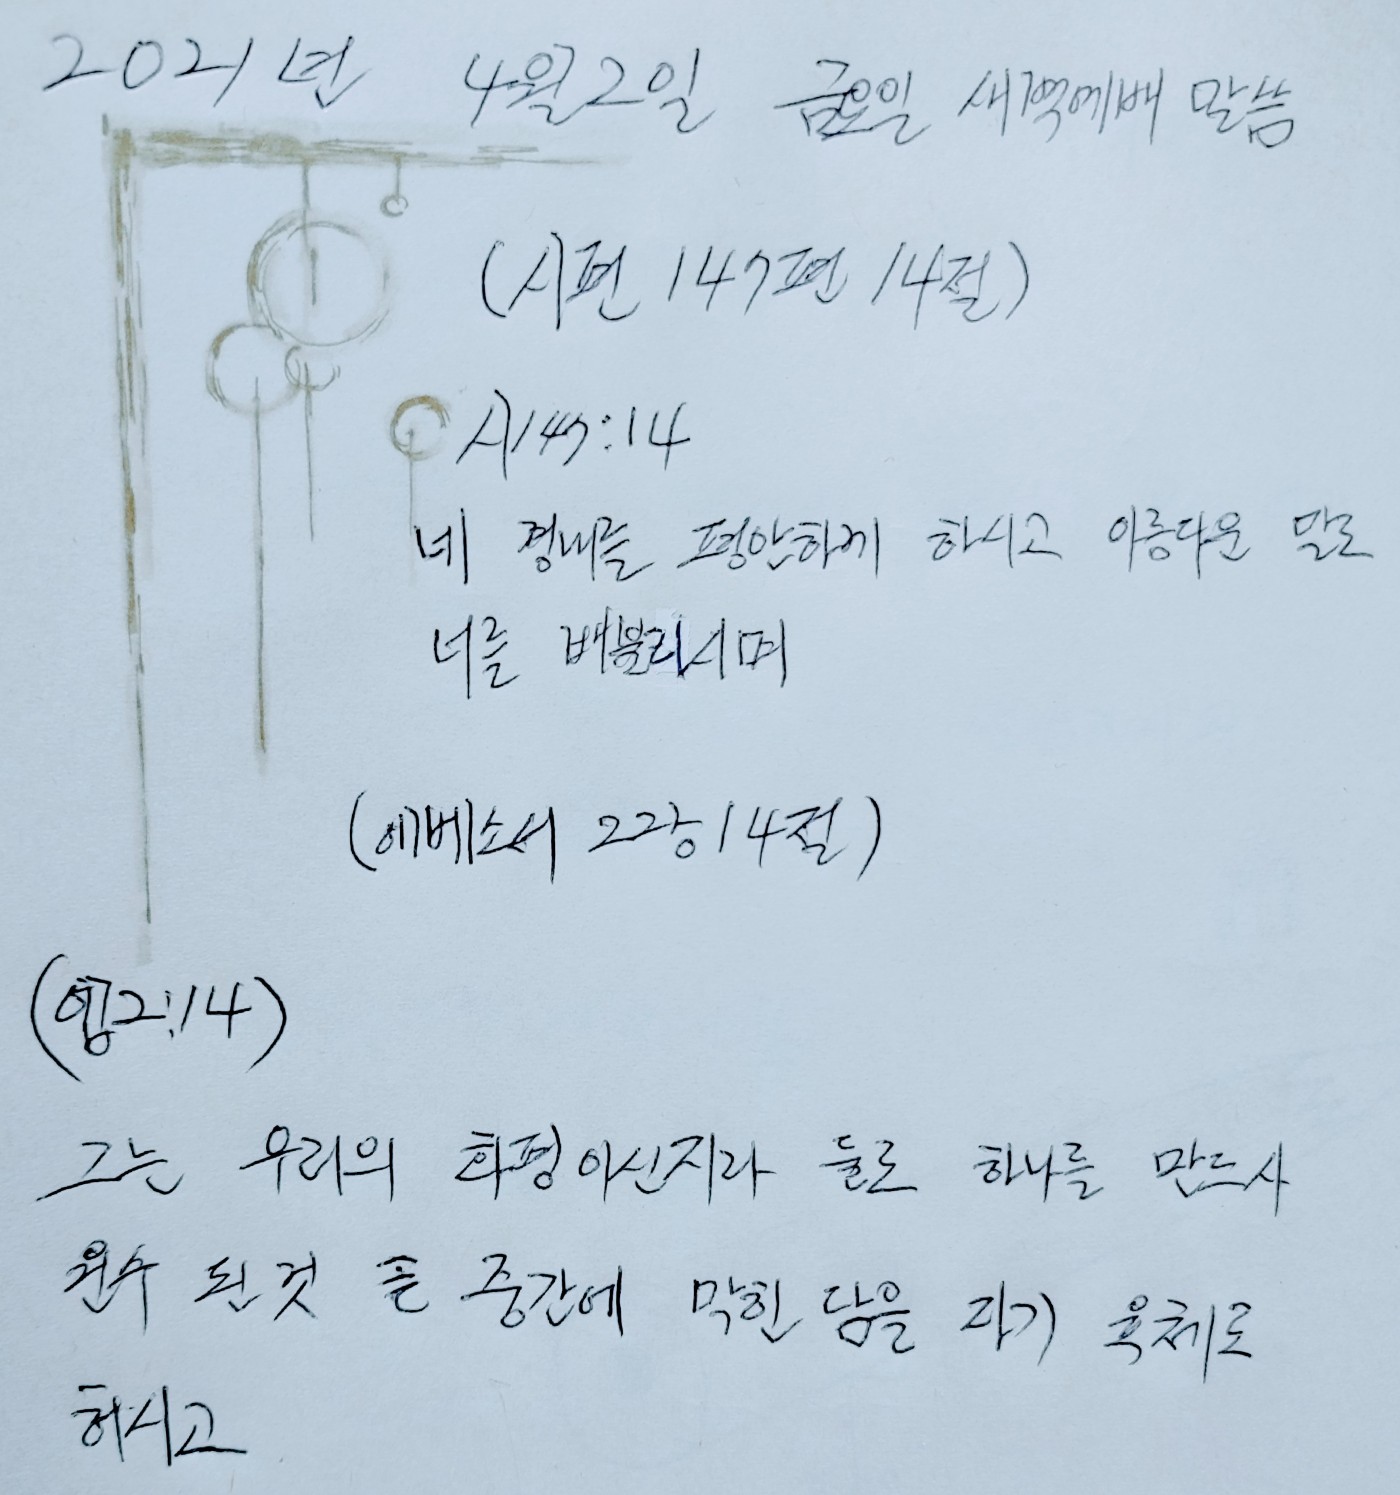 2021년 4월2일 금요일 새벽예배 말씀
(시편 147편 14절)
시147:14
네 경내를 평안하게 하시고 아름다운 밀로
너를 배불리시며
(에베소서 2장14절)
(엡2:14)
그는 우리의 화평이신지라 둘로 하나를 만드사
원수 된것 곧 중간에 막힌 담을 자기 육체로
허시고